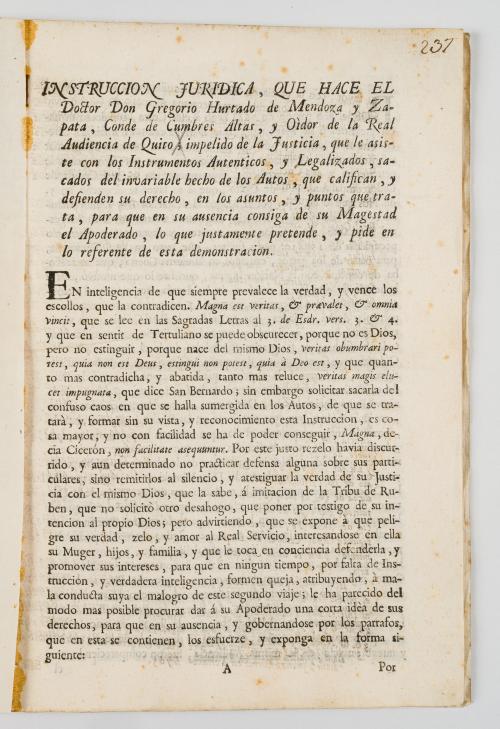 237
INSTRUCCION JURIDICA, QUE HACE EL
Doctor Don Gregorio Hurtado de Mendoza y Za-
pata, Conde de Cumbres Altas, y Oìdor de la Real
Audiencia de Quito, impelido de la Justicia, que le asis-
te con los Instrumentos Autenticos, y Legalizados, sa-
cados del invariable hecho de los Autos, que califican, y
defienden su derecho, en los asuntos, y puntos que tra-
ta, para que en su ausencia consiga de su Magestad
el Apoderado, lo que justamente pretende, y pide en
lo referente de esta demonstracion.
EN inteligencia de que siempre prevalece la verdad, y vence los
escollos, que la contradicen. Magna est veritas, & prævalet, & omnia
vincit, que se lee en las Sagradas Letras al 3. de Esdr. vers. 3. & 4.
y que en sentit de Tertuliano se puede obscurecer, porque no es Dios,
pero no estinguir, porque nace del mismo Dios, veritas obumbrari po-
test, quia non est Deus, estingui non potest, quia à Deo est, y que quan-
to mas contradicha, y abatida, tanto mas reluce, veritas magis elu-
cet impugnata, que dice San Bernardo; sin embargo solicitar sacarla del
confuso caos en que se halla sumergida en los Autos, de que se tra-
tarà, y formar sin su vista, y reconocimiento esta Instruccion, es co-
sa mayor, y no con facilidad se ha de poder conseguir, Magna, de-
cia Cicerón, non facilitate asequuntur. Por este justo rezelo havia discur-
rido, y aun determinado no practicar defensa alguna sobre sus parti-
culares, sino remitirlos al silencio, y atestiguar la verdad de su Justi-
cia con el mismo Dios, que la sabe, á imitacion de la Tribu de Ru-
ben, que no solicitò otro desahogo, que poner por testigo de su in-
tencion al propio Dios; pero advirtiendo, que se expone à que peli-
gre su verdad, zelo, y amor al Real Servicio, interesandose en ella
su Muger, hijos, y familia, y que le toca en conciencia defenderla, y
promover sus intereses, para que en ningun tiempo, por falta de Ins-
truccion, y verdadera inteligencia, formen queja, atribuyendo, à ma-
la conducta suya el malogro de este segundo viaje; le ha parecido del
modo mas posible procurar dar á su Apoderado una corta idèa de sus
derechos, para que en su ausencia, y gobernandose por los parrafos,
que en esta se contienen, los esfuerze, y exponga en la forma si-
guiente:
A
Por